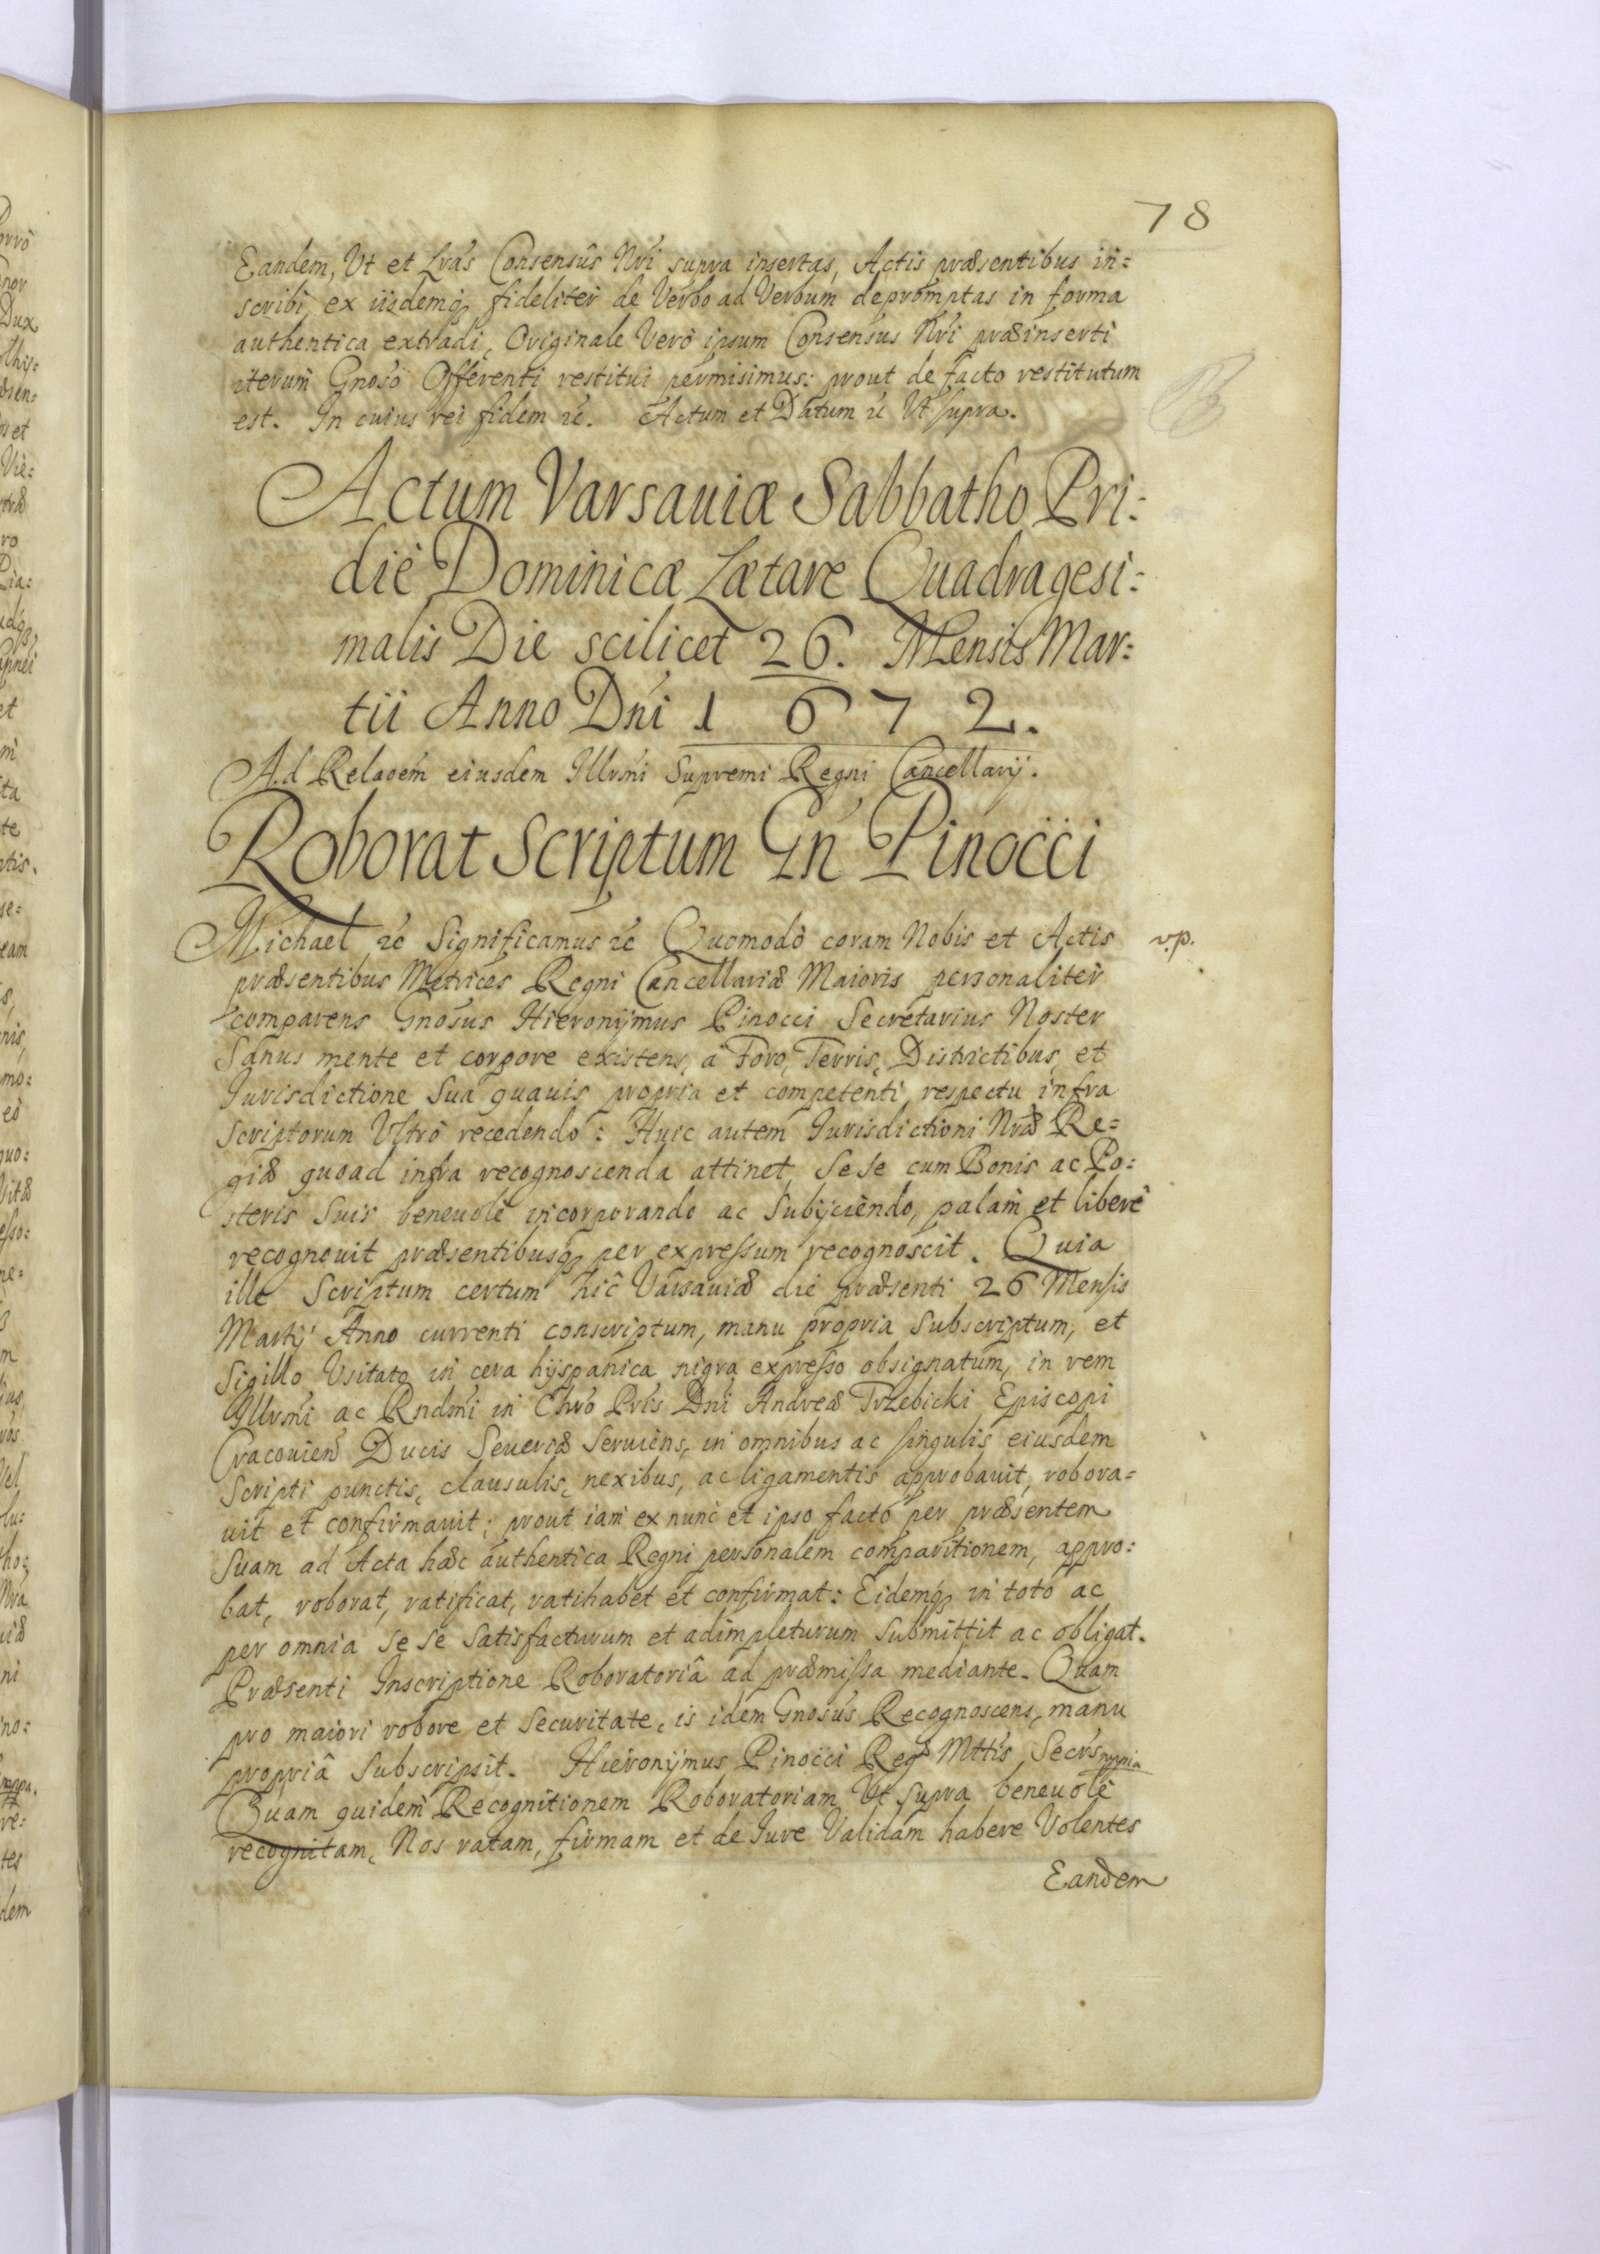 78
Eandem, Ut et Lrãs Consensûs Nri supra insertas, Actis præsentibus in=
scribi, ex iisdemq̨ fideliter de Verbo ad Verbum depromptas in forma
authentica extradi, Originale Verò ipsum Consensus Nri præinserti
iterum Gnoso Offerenti restitui permisimus: prout de facto restitutum
est. In cuius rei fidem &c. Actum et Datum &c Ut supra.
Actum Varsauiæ Sabbatho Pri=
die Dominicæ Lætare Quadragesi=
malis Die scilicet 26. Mensis Mar=
tii Anno Dni 1672.
Ad Relaoem eiusdem Illvmi Supremi Regni Cancellarij.
Roborat Scriptum Gn Pinocci
Michael &c Significamus &c Quomodo coram Nobis et Actis
v.p.
præsentibus Metrices Regni Cancellariæ Maioris personaliter
comparens Gnosus Hieronÿmus Pinocci Secretarius Noster
Sanus mente et corpore existens, a Foro, Terris, Districtibus, et
Jurisdictione Sua quauis propria et competenti, respectu infra
scriptorum Ultrò recedendo: Huic autem Jurisdictioni Nræ Re=
giæ quoad infra recognoscenda attinet, Se se cum Bonis ac Po=
steris Suis beneuolè incorporando ac Subijciendo, palam et liberè
recognouit præsentibusq̨ per expressum recognoscit. Quia
ille Scriptum certum hic Varsauiæ die præsenti 26 Mensis
Martij Anno currenti conscriptum, manu propria Subscriptum, et
Sigillo Usitato in cera hijspanica nigra expresso obsignatum, in rem
Illvmi ac Rndmi in Chro Pris Dni Andreæ Trzebicki Episcopi
Cracouien Ducis Seueriæ Seruiens, in omnibus ac singulis eiusdem
Scripti punctis, clausulis, nexibus, ac ligamentis approbauit, robora=
uit et confirmauit; prout iam ex nunc et ipso facto per præsentem
Suam ad Acta hæc authentica Regni personalem comparitionem, appro=
bat, roborat, ratificat, ratihabet et confirmat: Eidemq̨ in toto ac
per omnia se se satisfacturum et adimpleturum submittit ac obligat.
Præsenti Inscriptione Roboratoriâ ad præmissa mediante. Quam
pro maiori robore et securitate, is idem Gnosus Recognoscens, manu
propriâ Subscripsit. Hieronÿmus Pinocci Reg Mttis Secrs mppia
Quam quidem Recognitionem Roboratoriam Ut supra beneuolè
recognitam, Nos ratam, firmam et de Jure Validam habere Volentes
Eandem